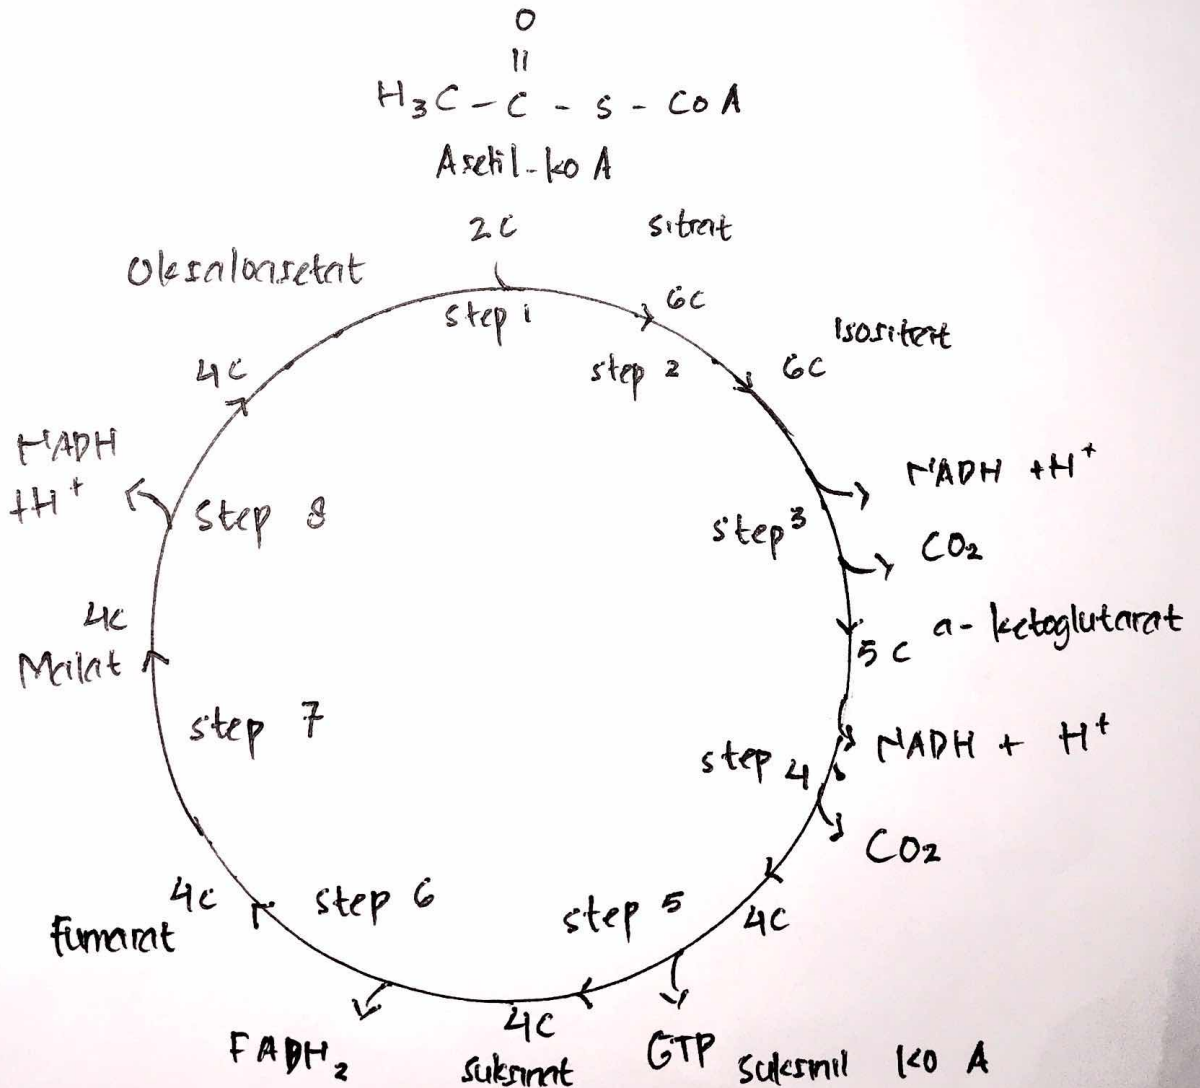 O
||
H₃C - C - S - CoA
Asetil-ko A
2C
sitrat
Oksaloasetat
step 1
6C
Isositrat
step 2
6C
4C
NADH
+H⁺
step 8
NADH +H⁺
step 3
CO₂
4C
Malat
a- ketoglutarat
5C
step 7
step 4
NADH + H⁺
CO₂
4C
step 6
step 5
4C
Fumarat
FADH₂
4C
suksinat
GTP
suksinil ko A